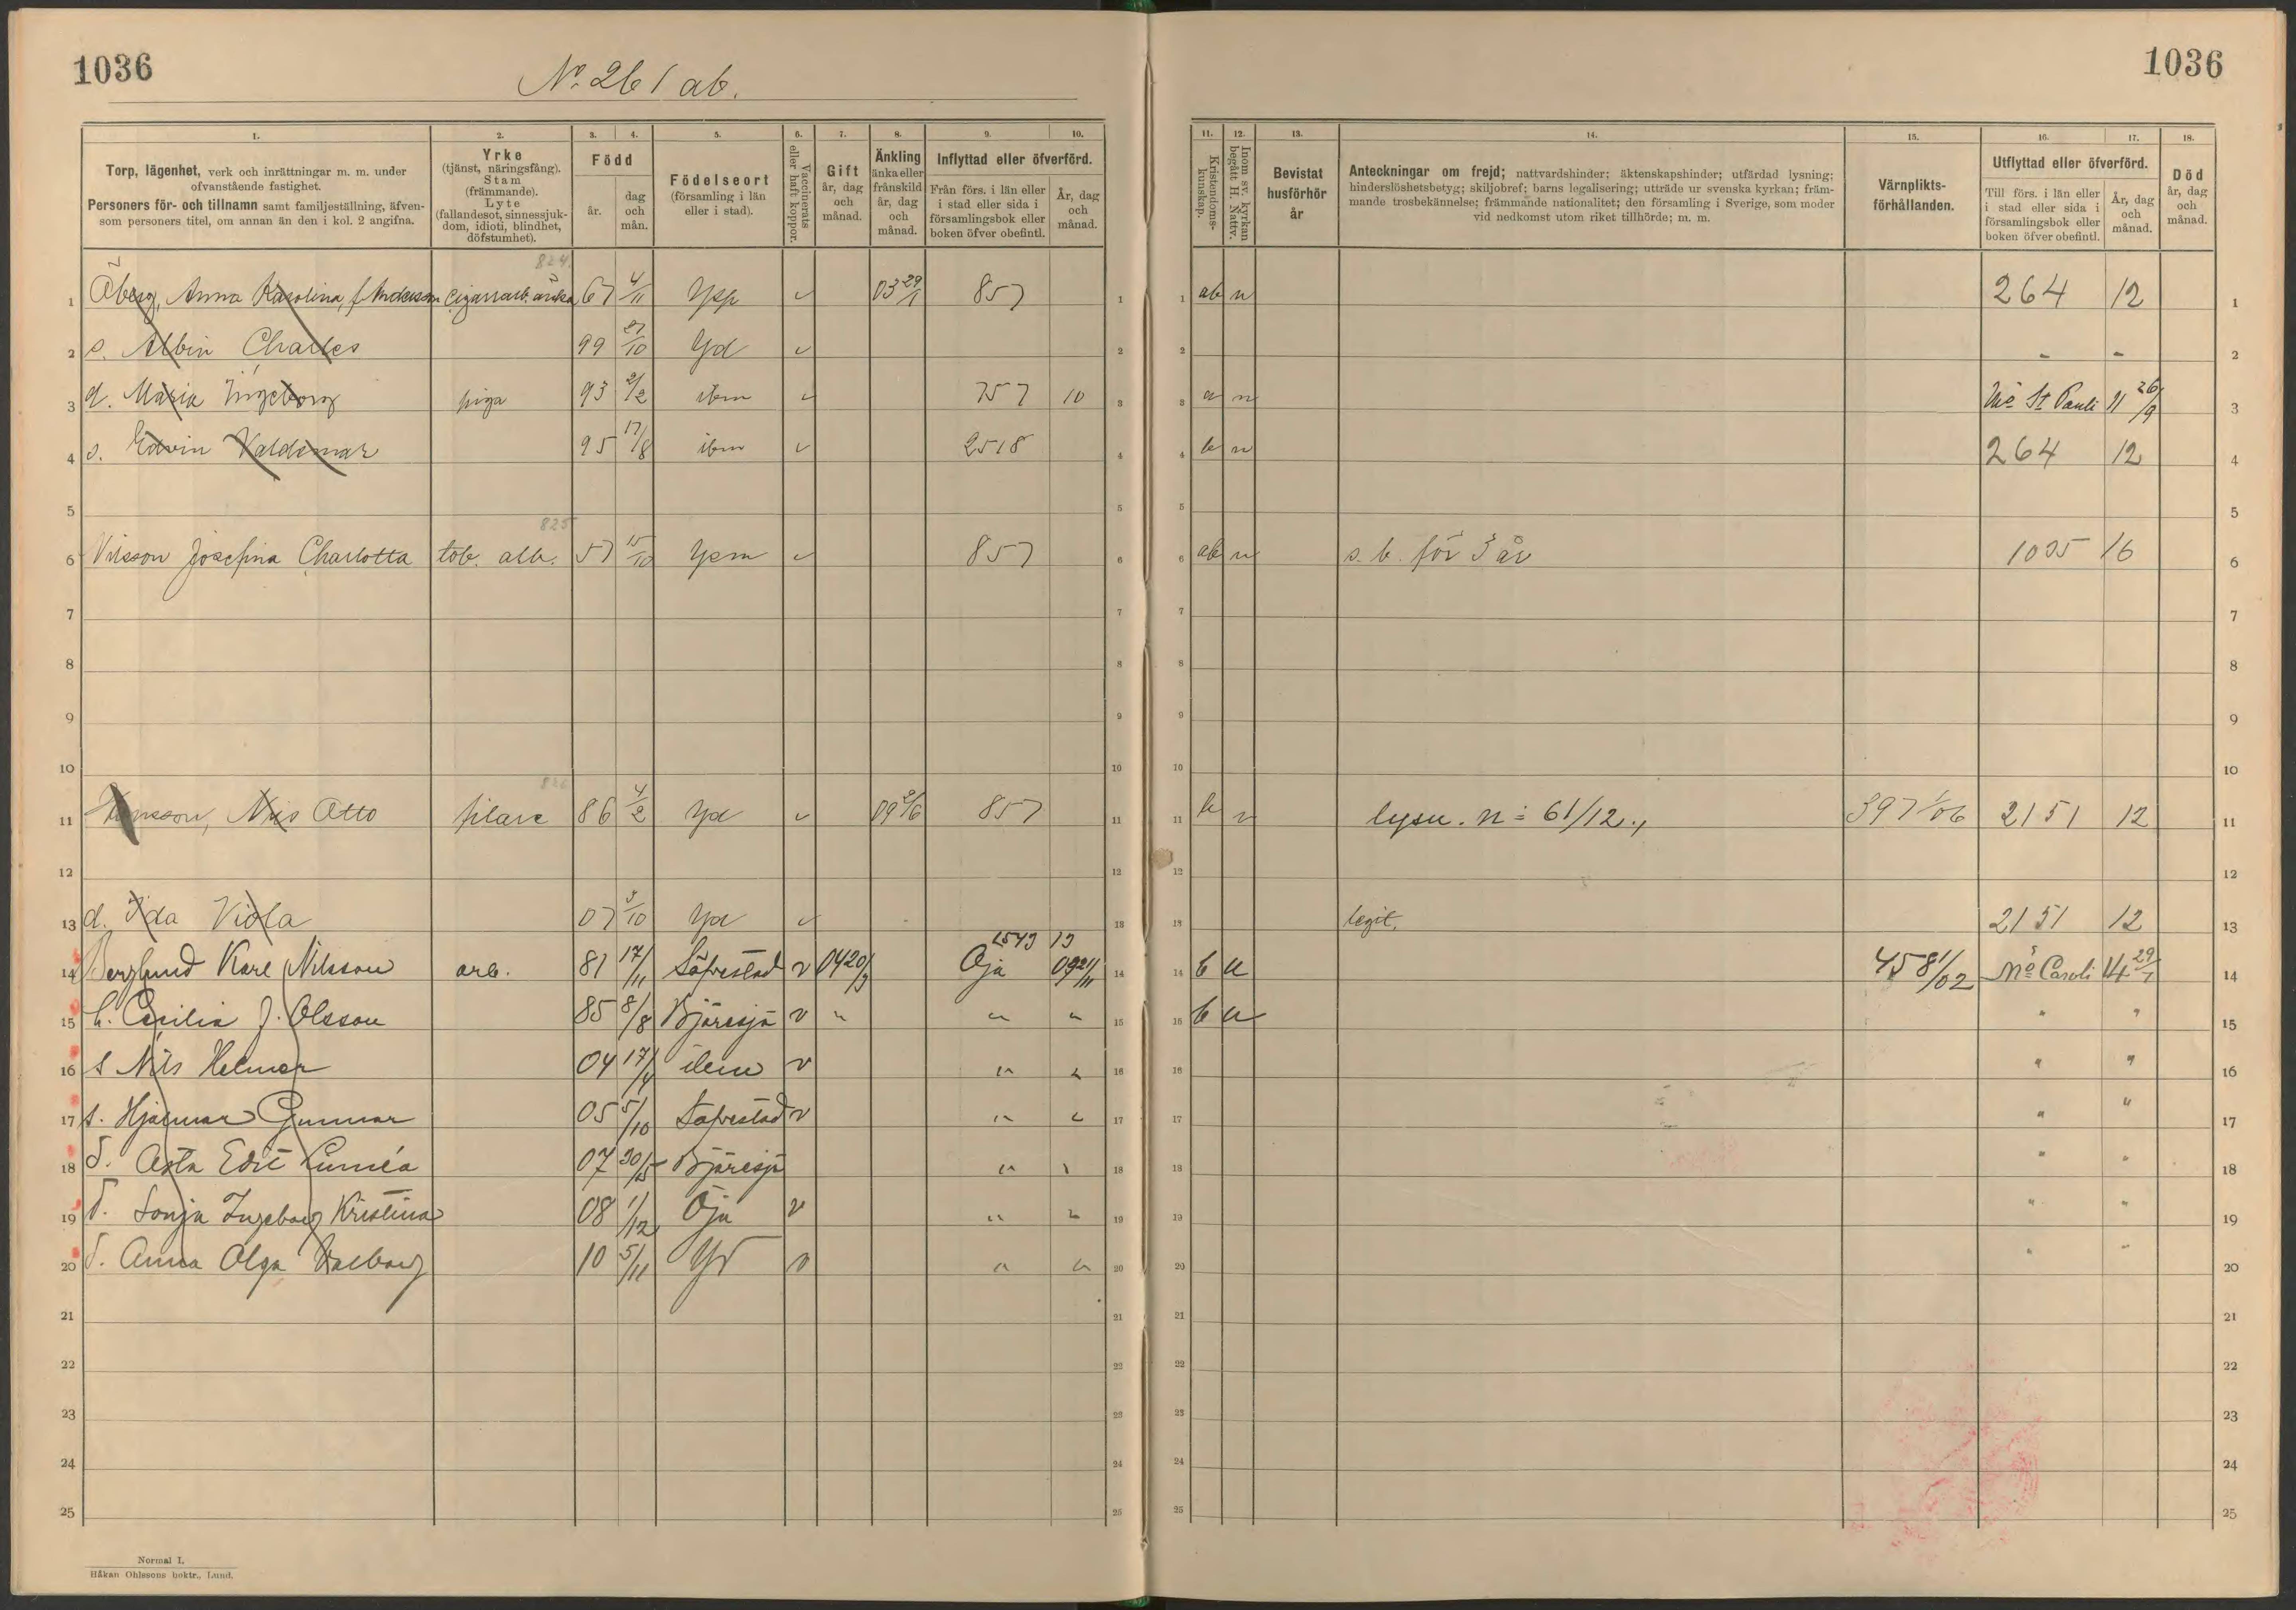 1036
No. 261 ab.
1. 2. 3. 4. 5. 6. 7. 8. 9. 10.
Torp, lägenhet, verk och inrättningar m. m. under
ofvanstående fastighet.
Personers för- och tillnamn samt familjeställning, äfven-
som personers titel, om annan än den i kol. 2 angifna.
Yrke
(tjänst, näringsfång).
Stam
(främmande).
Lyte
(fallandesot, sinnessjuk-
dom, idioti, blindhet,
döfstumhet).
Född
år.
dag
och
mån.
Födelseort
(församling i län
eller i stad).
Vaccinerats
eller haft koppor.
Gift
år, dag
och
månad.
Änkling
änka eller
frånskild
år, dag
och
månad.
Inflyttad eller öfverförd.
Från förs. i län eller
i stad eller sida i
församlingsbok eller
boken öfver obefintl.
År, dag
och
månad.
824.
1 Åberg, Anna Karolina, f. Andersson cigarrarb. änka 67 4/11 Ysp v 03 29/1 857 1
2 s. Albin Charles 99 27/10 Yd v 2
3 d. Maria Ingeborg piga 93 2/2 ibm v 757 10 3
4 s. Edvin Valdemar 95 17/8 ibm v 2518 4
5 5
825
6 Nilsson Josefina Charlotta tob. arb. 57 15/10 Ysm v 857 6
7 7
8 8
9 9
10 10
826
11 Hansson, Nils Otto filare 86 4/2 Yd v 09 2/6 857 11
12 12
13 d. Ida Viola 07 5/10 Yd v 13
1549 13
14 Berglund Karl Nilsson arb. 81 17/11 Söfvestad v 04 20/3 Öja 09 21/11 14
15 h. Cecilia f. Olsson 85 8/8 Bjäresjö v " " " 15
16 s Nils Helmer 04 17/4 idem v " " 16
17 s. Hjalmar Gunnar 05 5/10 Söfvestad v " " 17
18 d. Asta Edit Linnéa 07 30/5 Bjäresjö " " 18
19 d. Sonja Ingeborg Kristina 08 1/12 Öja v " " 19
20 d. Anna Olga Valborg 10 5/11 Yd v " " 20
21 21
22 22
23 23
24 24
25 25
Normal I.
Håkan Ohlssons boktr., Lund.
1036
11. 12. 13. 14. 15. 16. 17. 18.
Kristendoms-
kunskap.
Inom sv. kyrkan
begått H. Nattv.
Bevistat
husförhör
år
Anteckningar om frejd; nattvardshinder; äktenskapshinder; utfärdad lysning;
hinderslöshetsbetyg; skiljobref; barns legalisering; utträde ur svenska kyrkan; främ-
mande trosbekännelse; främmande nationalitet; den församling i Sverige, som moder
vid nedkomst utom riket tillhörde; m. m.
Värnplikts-
förhållanden.
Utflyttad eller öfverförd.
Till förs. i län eller
i stad eller sida i
församlingsbok eller
boken öfver obefintl.
År, dag
och
månad.
Död
år, dag
och
månad.
1 ab n 264 12 1
2 - - 2
3 a n Mö St Pauli 11 26/9 3
4 b n 264 12 4
5 5
6 ab n s. b. för 3 år 1035 16 6
7 7
8 8
9 9
10 10
11 b n lysn. n = 61/12. 397 1/06 2151 12 11
12 12
13 legit. 2151 12 13
14 b n 458 1/02 Mö Caroli 14 29/1 14
15 b n " " 15
16 " " 16
17 " " 17
18 " " 18
19 " " 19
20 " " 20
21 21
22 22
23 23
24 24
25 25